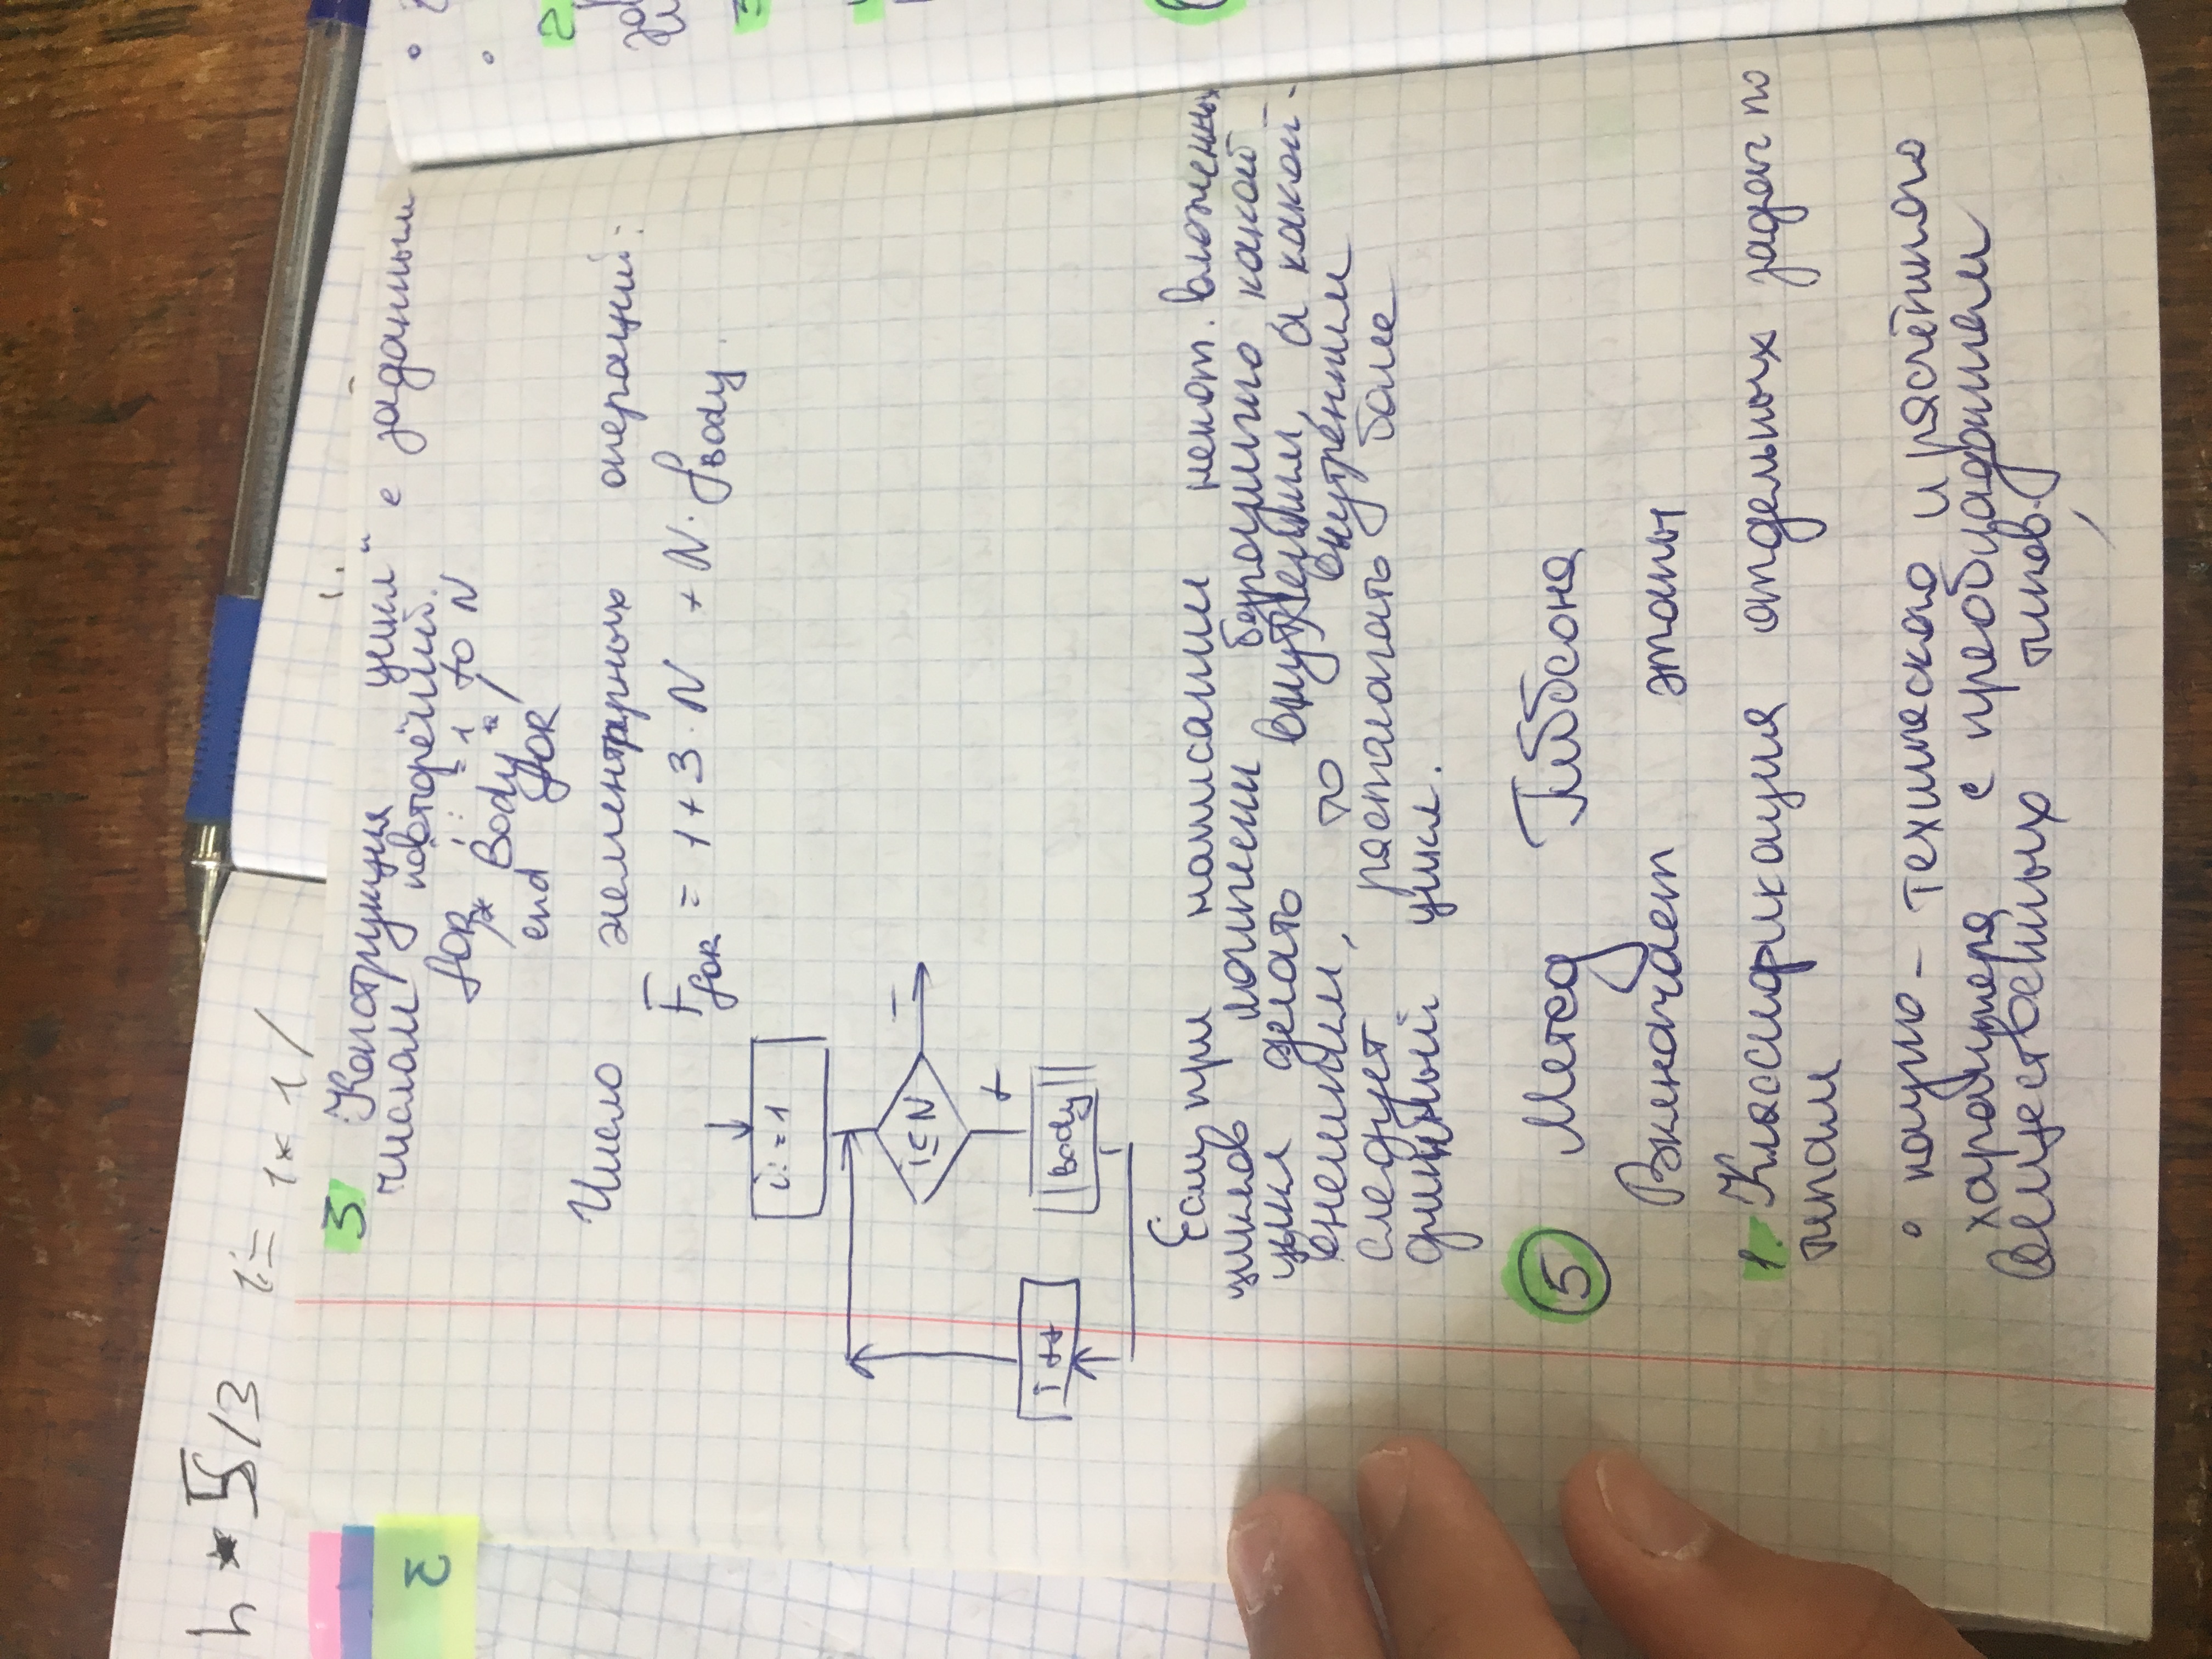 h * 5/3 i:= 1 * 1 /
3
3. Конструкция „цикл" с заданным
числом повторений.
for i: = 1 to N
/* Body */
end for
Число элементарных операций:
F for = 1 + 3 · N + N · f Body.
i: = 1
i ≤ N
−
+
i ++
Body
Если при написании некот. вложенных
циклов логически безразлично, какой
цикл делать внутренним, а какой -
внешним, то внутренним
следует располагать более
длинный цикл.
5 Метод Гиббсона
Включает этапы
1. Классификация отдельных задач по
типам
• научно - технического и расчётного
характера с преобладанием
вещественных типов.
2.
3